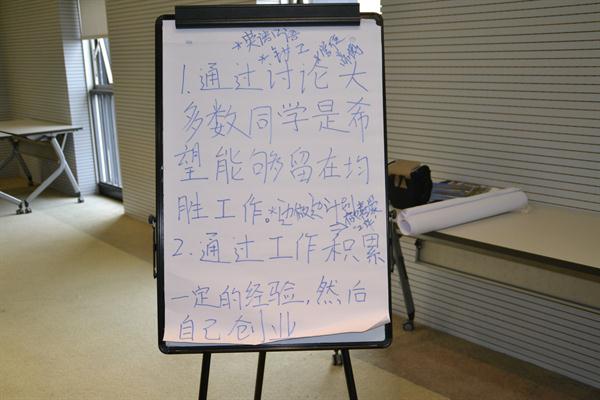 *英语口语
1.通过讨论大
多数同学是希
望能够留在均
胜工作。*边做边计划
2.通过工作积累
一定的经验,然后
自己创业